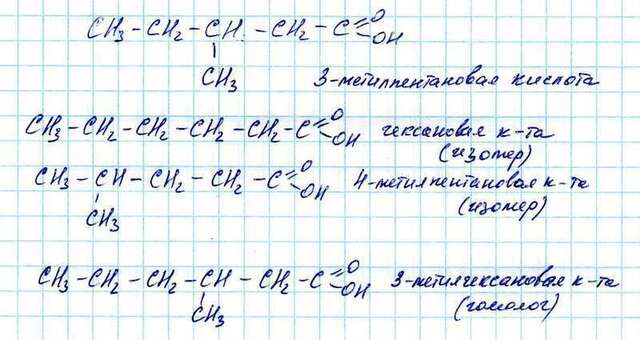 CH₃ - CH₂ - CH - CH₂ - C =O -OH
CH₃ 3-метилпентановая кислота
CH₃ - CH₂ - CH₂ - CH₂ - CH₂ - C =O -OH гексановая к-та
(изомер)
CH₃ - CH - CH₂ - CH₂ - C =O -OH 4-метилпентановая к-та
CH₃ (изомер)
CH₃ - CH₂ - CH₂ - CH - CH₂ - C =O -OH 3-метилгексановая к-та
CH₃ (гомолог)